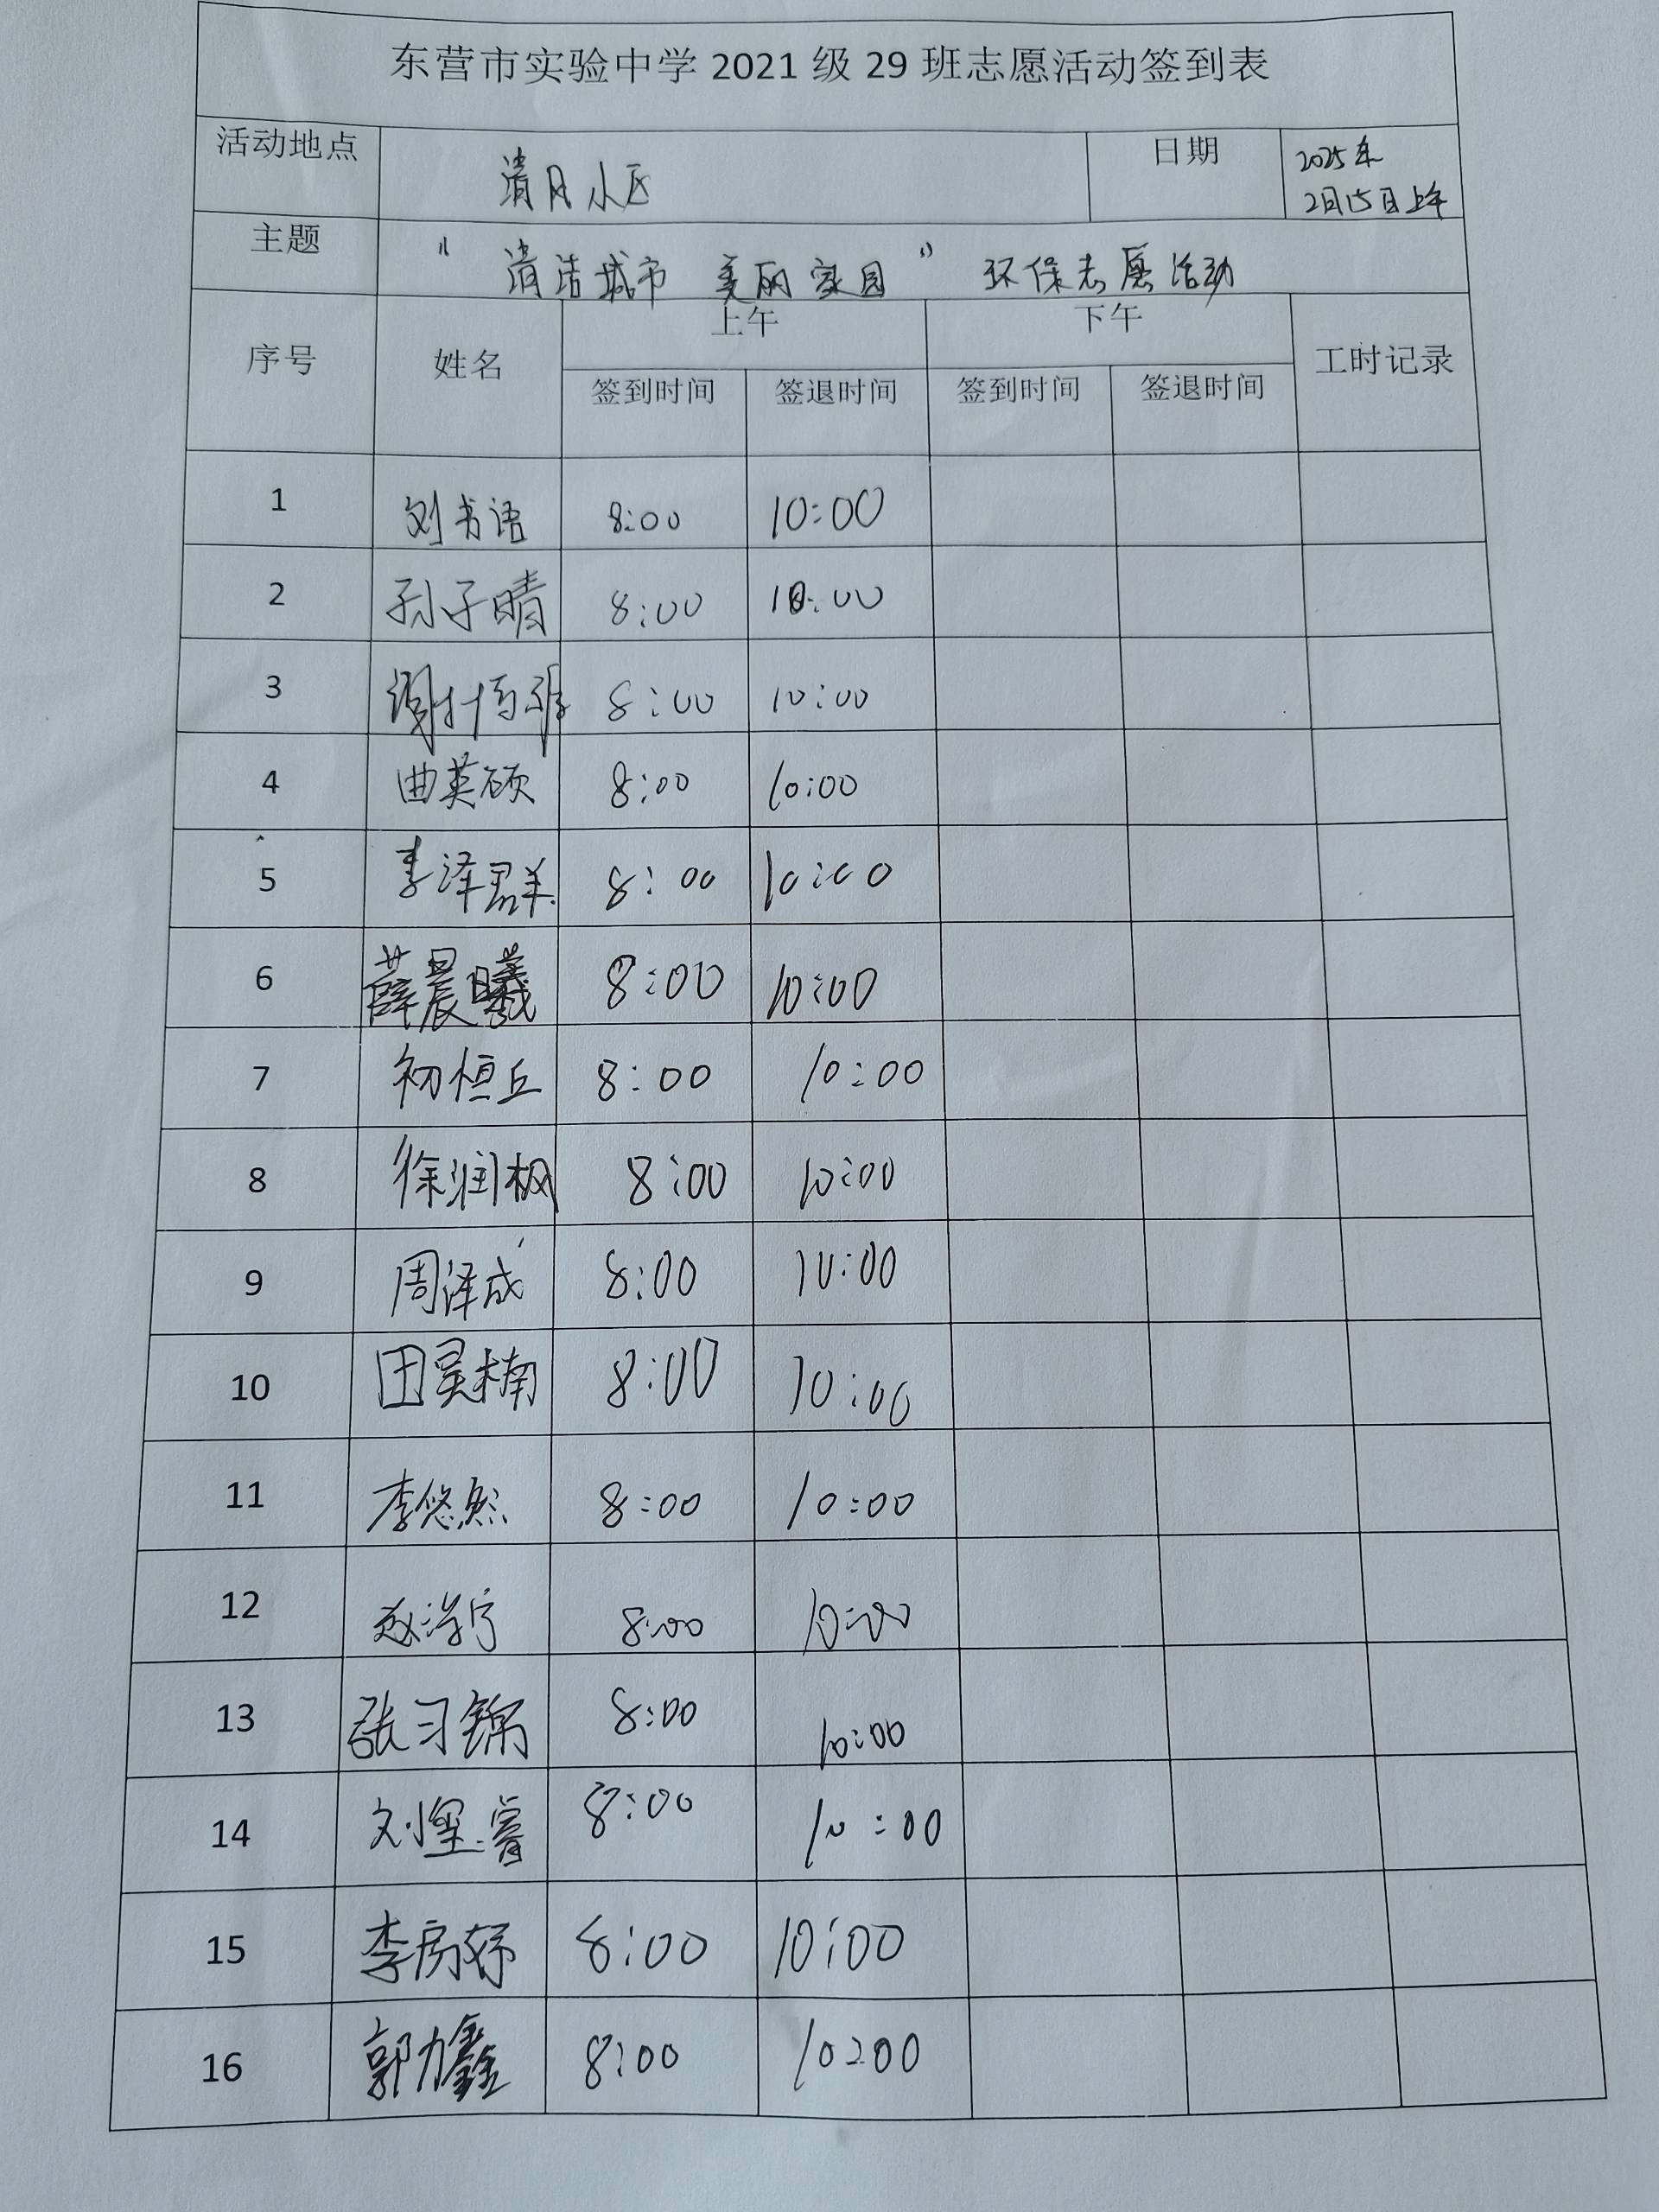 东营市实验中学 2021 级 29 班志愿活动签到表
活动地点 清月小区 日期 2025年
2月15日上午
主题 “清洁城市 美丽家园”环保志愿活动
序号 姓名 上午 下午 工时记录
签到时间 签退时间 签到时间 签退时间
1 刘书语 8:00 10:00
2 孙子晴 8:00 10:00
3 8:00 10:00
4 曲英硕 8:00 10:00
5 李泽群 8:00 10:00
6 薛晨曦 8:00 10:00
7 初恒丘 8:00 10:00
8 徐润枫 8:00 10:00
9 周泽成 8:00 10:00
10 田昊楠 8:00 10:00
11 李悠然 8:00 10:00
12 8:00 10:00
13 张习锦 8:00 10:00
14 8:00 10:00
15 8:00 10:00
16 郭力鑫 8:00 10:00